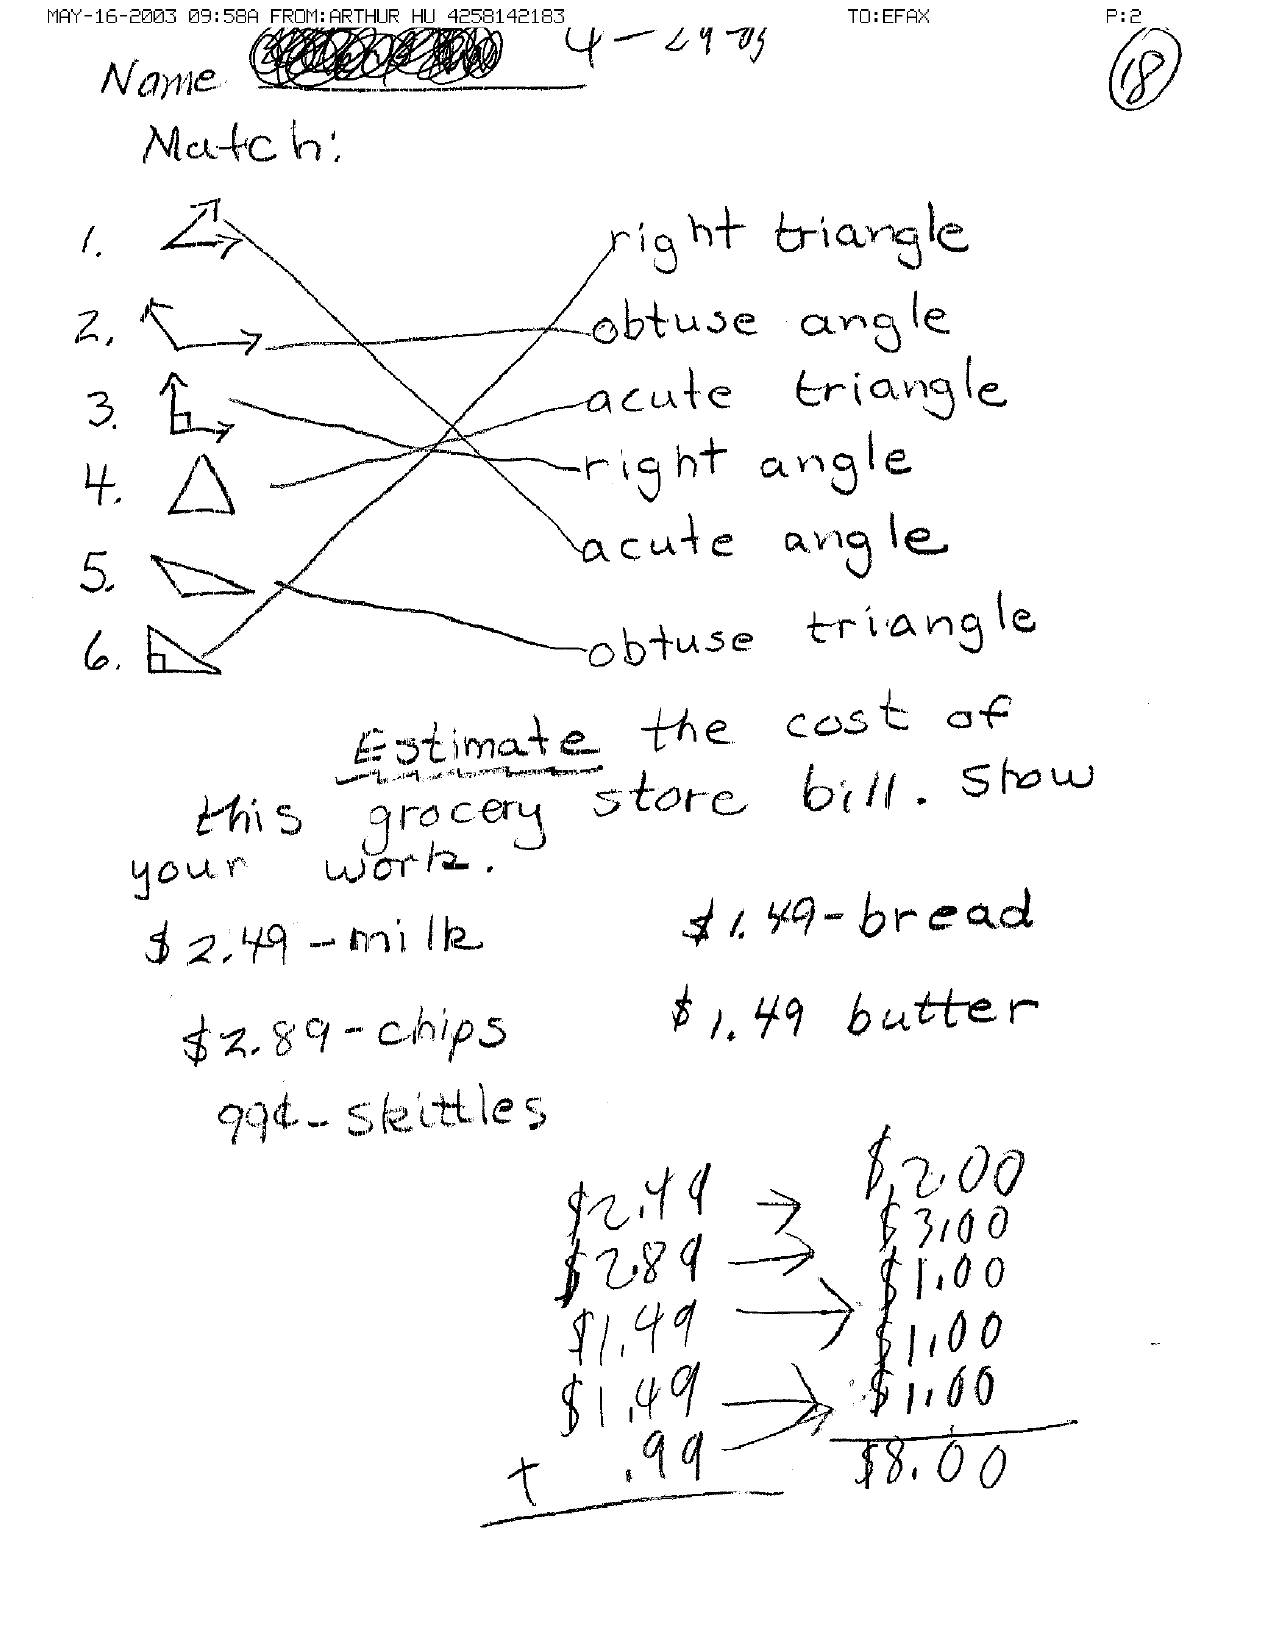 MAY-16-2003 09:58A FROM:ARTHUR HU 4258142183 TO:EFAX P:2
4-29-03
18
Name
Match:
1. right triangle
2. obtuse angle
3. acute triangle
4. right angle
5. acute angle
6. obtuse triangle
Estimate the cost of
this grocery store bill. Show
your work.
$2.49-milk $1.49-bread
$2.89-chips $1.49 butter
99¢-Skittles
$2.49 → $2.00
$2.89 → $3.00
$1.49 → $1.00
$1.49 → $1.00
+ .99 → $1.00
$8.00